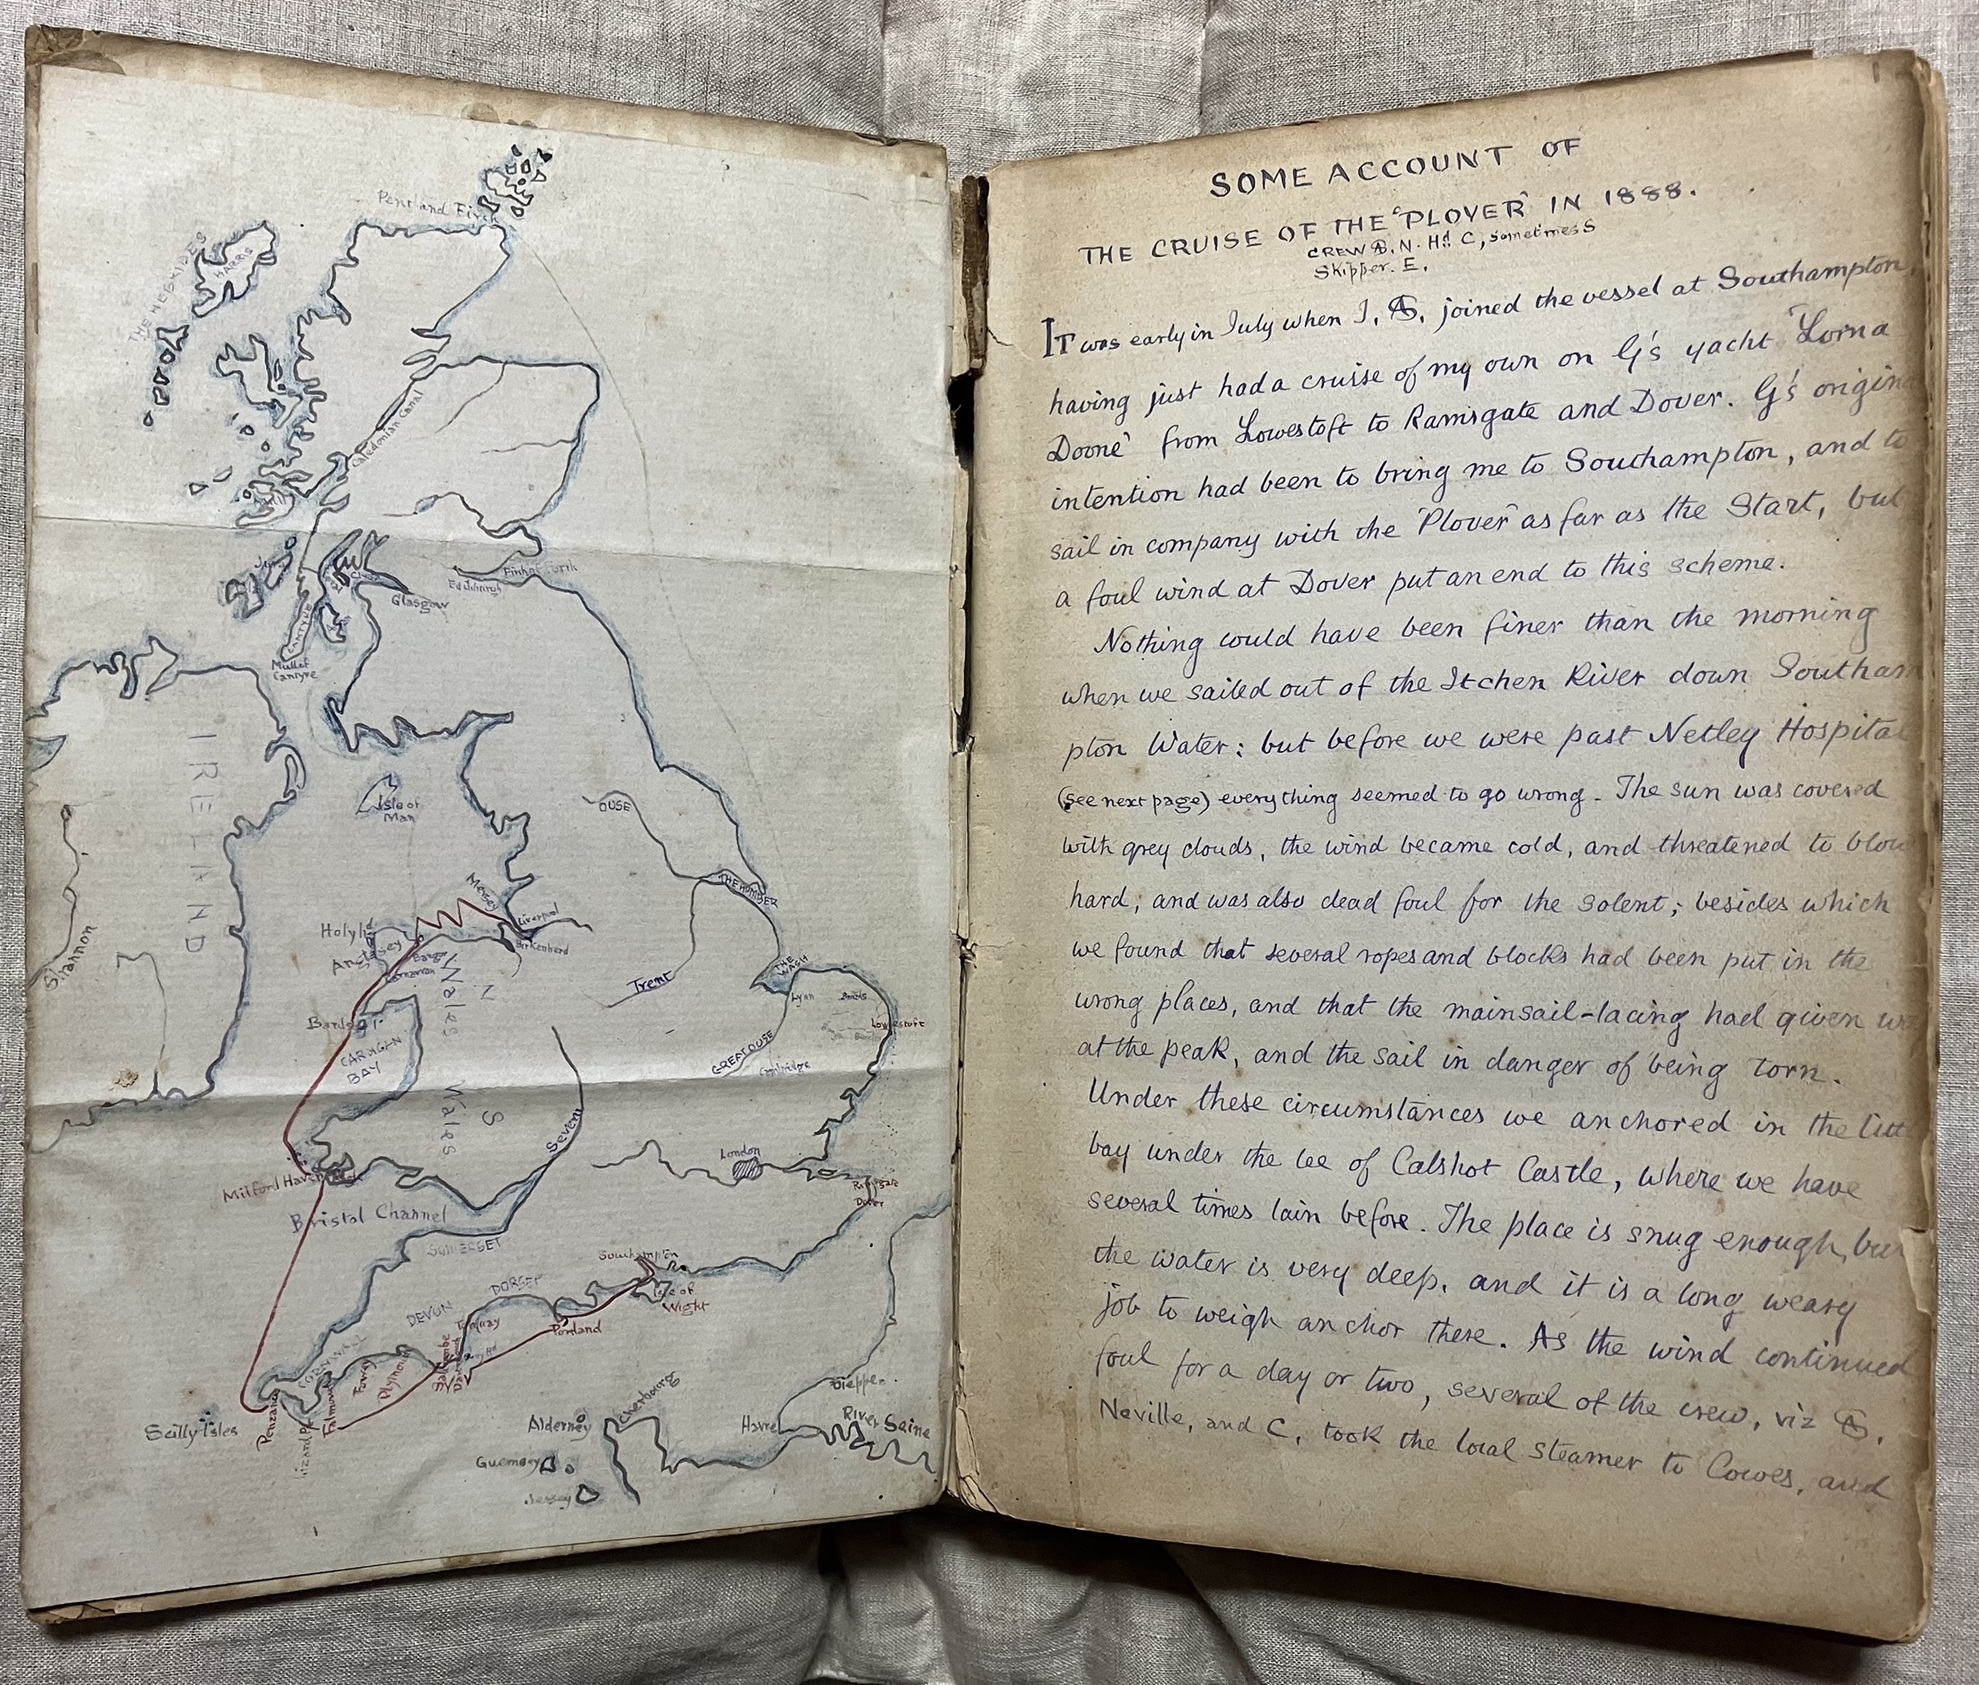 Pentland Firth
THE HEBRIDES
HARRIS
Caledonian Canal
Edinburgh
Glasgow
Mull of
Cantyre
IRELAND
Isle of
Man
OUSE
THE HUMBER
Mersey
Liverpool
Birkenhead
Holyhd
Anglesey
Carnarvon
N
Wales
Shannon
Trent
THE
WASH
Lynn
Lowestoft
Bardsey I
CARDIGAN
BAY
GREAT OUSE
Cambridge
S
Wales
Severn
London
Ramsgate
Dover
Milford Haven
Bristol Channel
SOMERSET
Southampton
Isle of
Wight
DORSET
DEVON
Torquay
Portland
CORNWALL
Fowey
Plymouth
Salcombe
Dartmouth
Scilly Isles
Penzance
Lizard Pt
Falmouth
Dieppe
Cherbourg
Alderney
Havre
River Seine
Guernsey
Jersey
SOME ACCOUNT OF
THE CRUISE OF THE "PLOVER" IN 1888.
CREW N. Hd C, sometimes S
Skipper. E.
IT was early in July when I, joined the vessel at Southampton,
having just had a cruise of my own on G's yacht "Lorna
Doone" from Lowestoft to Ramsgate and Dover. G's origin
intention had been to bring me to Southampton, and to
sail in company with the "Plover" as far as the Start, but
a foul wind at Dover put an end to this scheme.
Nothing could have been finer than the morning
when we sailed out of the Itchen River down Southam
pton Water: but before we were past Netley Hospital
(see next page) everything seemed to go wrong. The sun was covered
with grey clouds, the wind became cold, and threatened to blow
hard; and was also dead foul for the Solent; besides which
we found that several ropes and blocks had been put in the
wrong places, and that the mainsail-lacing had given
at the peak, and the sail in danger of being torn.
Under these circumstances we anchored in the litt
bay under the lee of Calshot Castle, where we have
several times lain before. The place is snug enough, but
the water is very deep, and it is a long weary
job to weigh anchor there. As the wind continued
foul for a day or two, several of the crew, viz
Neville, and C, took the local steamer to Cowes, and